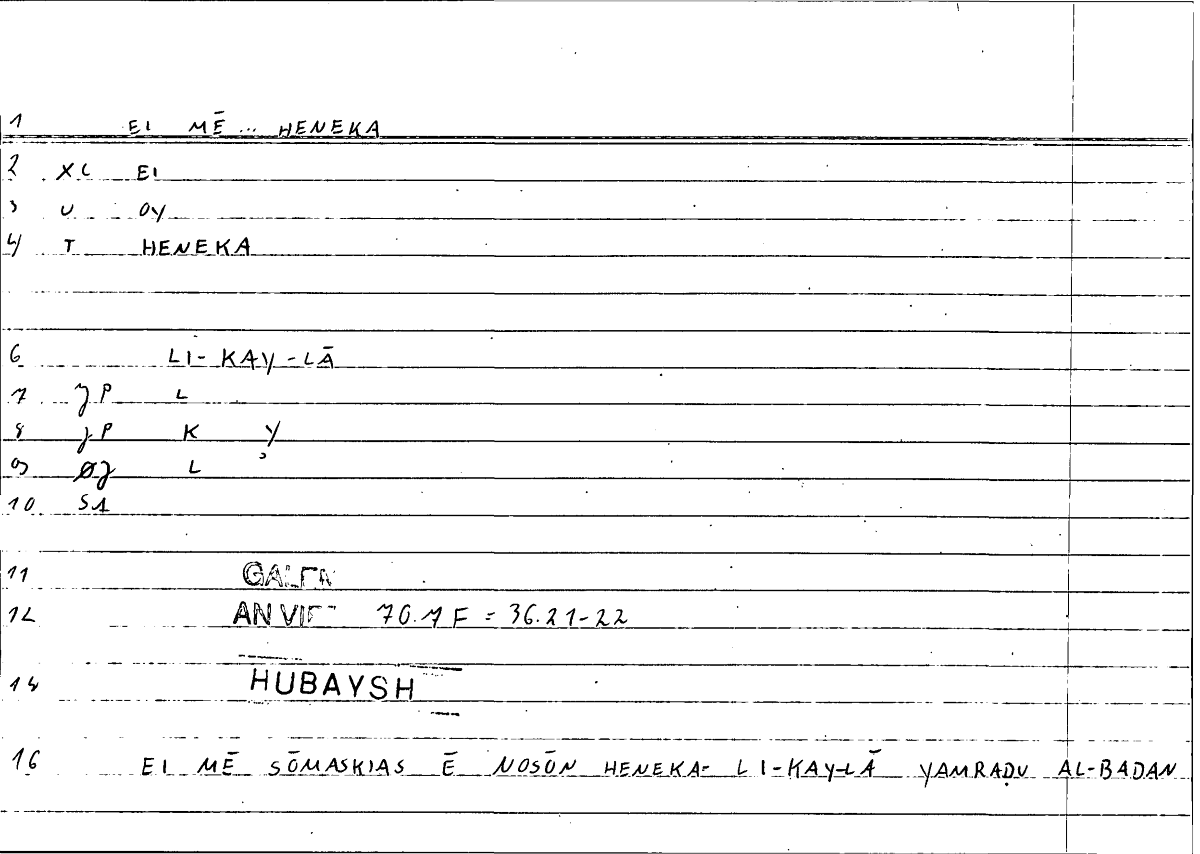 1 EI MĒ ... HENEKA
2 XL EI
3 U OY
4 T HENEKA
6 LI-KAY-LĀ
7 JP L
8 JP K Y
9 ØJ L
10 S1
11 GALEN
12 AN VIRT 70.7 F = 36.21-22
14 HUBAYSH
16 EI MĒ SŌMASKIAS Ē NOSŌN HENEKA= LI-KAY-LĀ YAMRAḌU AL-BADAN